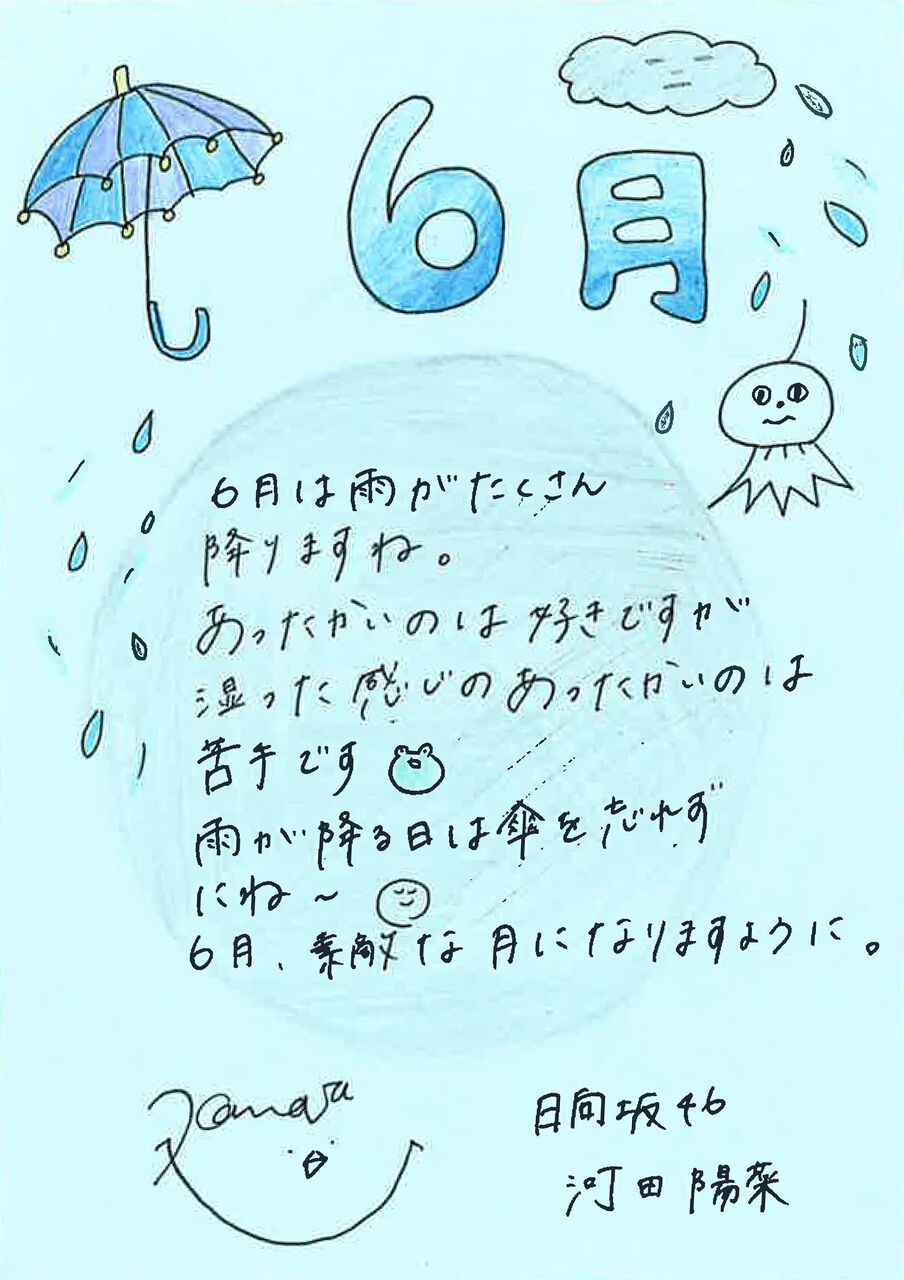 6月
6月は雨がたくさん
降りますね。
あったかいのは好きですが
湿った感じのあったかいのは
苦手です
雨が降る日は傘を忘れず
にね~
6月、素敵な月になりますように。
日向坂46
河田陽菜